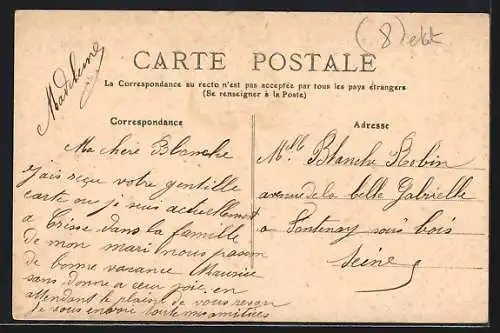 (8) etat
CARTE POSTALE
Madeleine
La Correspondance au recto n'est pas acceptée par tous les pays étrangers
(Se renseigner à la Poste)
Correspondance
Ma chère Blanche
jais reçu votre gentille
carte ou je suis actuellement
a dans la famille
de mon mari nous passon
de bonne vacance Maurice
sans donne a cœur joie en
attendant le plaisir de vous
je vous envoie toute mes amitiees
Adresse
Mlle Blanche Robin
avenue de la belle Gabrielle
a Fontenay sous bois
Seine